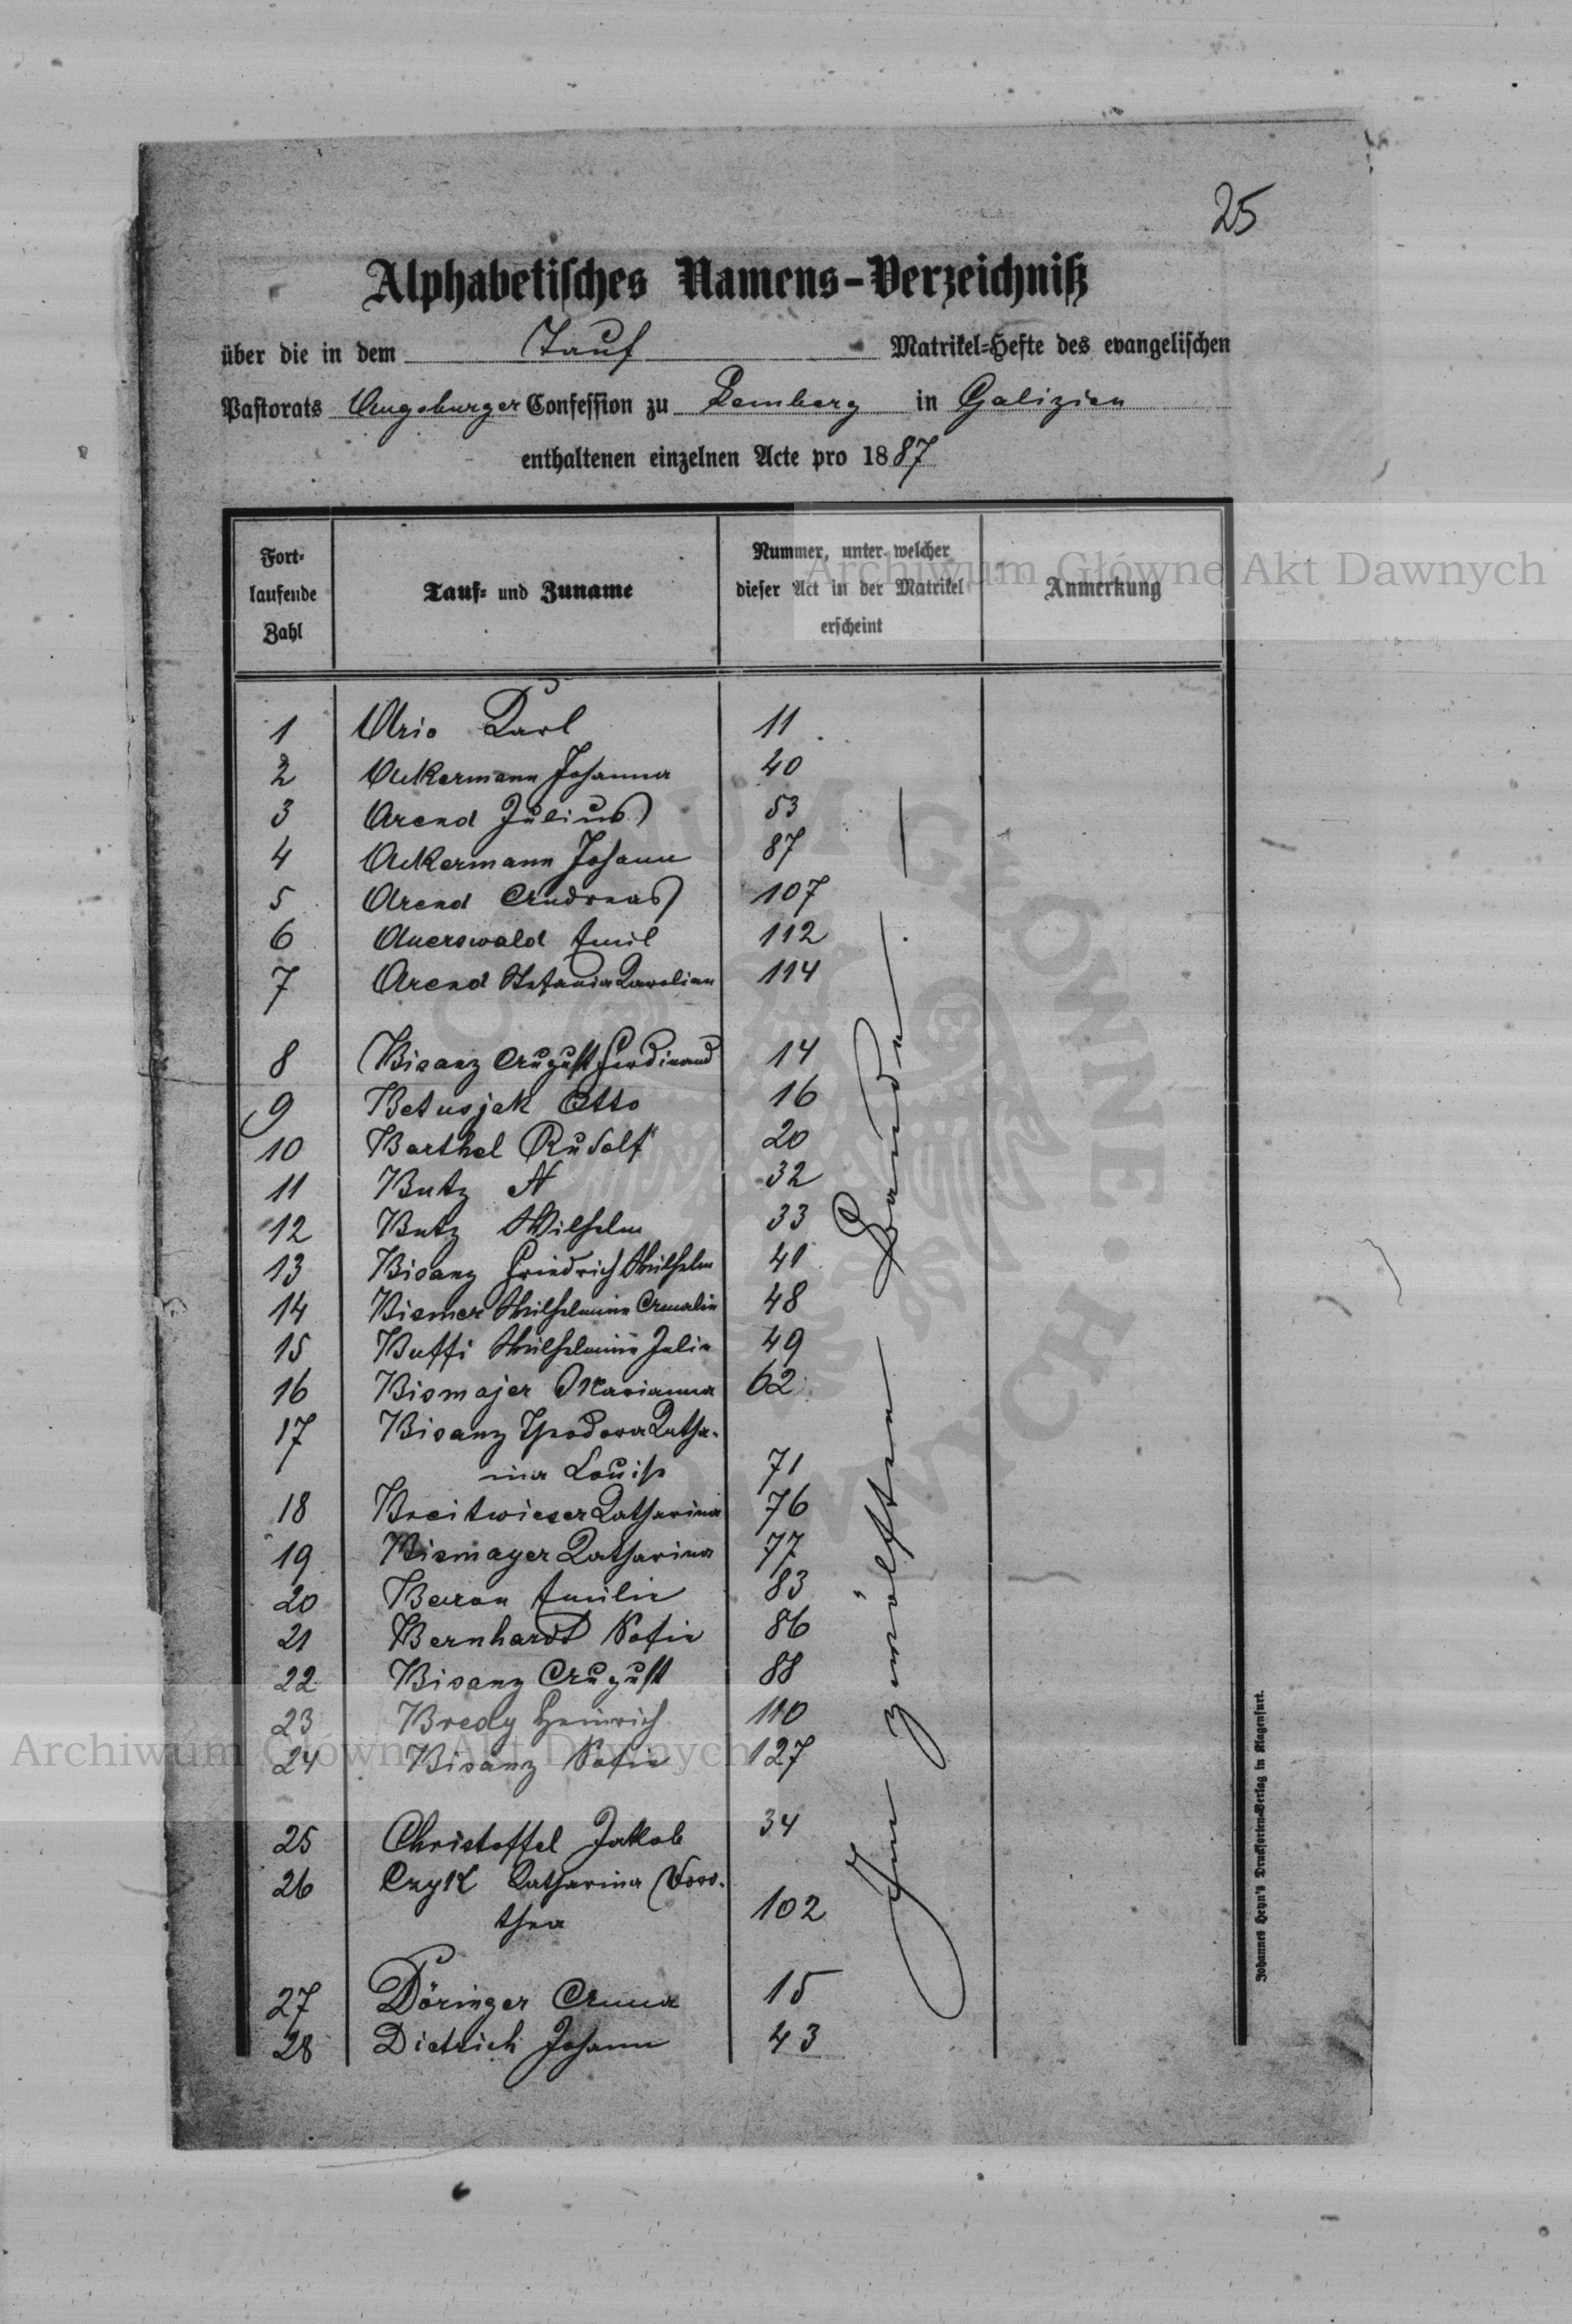 25
Alphabetisches Namens-Verzeichniß
über die in dem Tauf Matrikel-Hefte des evangelischen
Pastorats Augsburger Confession zu Lemberg in Galizien
enthaltenen einzelnen Acte pro 1887
Fort-
laufende
Zahl
Tauf- und Zuname
Nummer, unter welcher
dieser Act in der Matrikel
erscheint
Anmerkung
1 Karl 11
2 Ackermann Johanna 40
3 Arend Julius 53
4 Ackermann Johann 87
5 Arend Andreas 107
6 Auerswald Emil 112
7 Arend Stefania Karolina 114
8 Bisanz August Ferdinand 14
9 Betusjak Otto 16
10 Barthel Rudolf 20
11 Butz N 32
12 Butz Wilhelm 33
13 Bisanz Friedrich Wilhelm 41
14 Bismer Wilhelmine Amalie 48
15 Buffi Wilhelmine Julie 49
16 Bismajer Marianna 62
17 Bisanz Theodora Katha-
rina Louise 71
18 Breitwieser Katharina 76
19 Bismayer Katharina 77
20 Baron Emilie 83
21 Bernhardt Sofie 86
22 Bisanz August 88
23 Bredy Heinrich 110
24 Bisanz Sofie 127
25 Christoffel Jakob 34
26 Czyk Katharina Doro-
thea 102
27 Döringer Anna 15
28 Dietrich Johann 43
Im zwölften Bande.
Johannes Heyn's Drucksorten-Verlag in Klagenfurt.
Archiwum Główne Akt Dawnych
Archiwum Główne Akt Dawnych